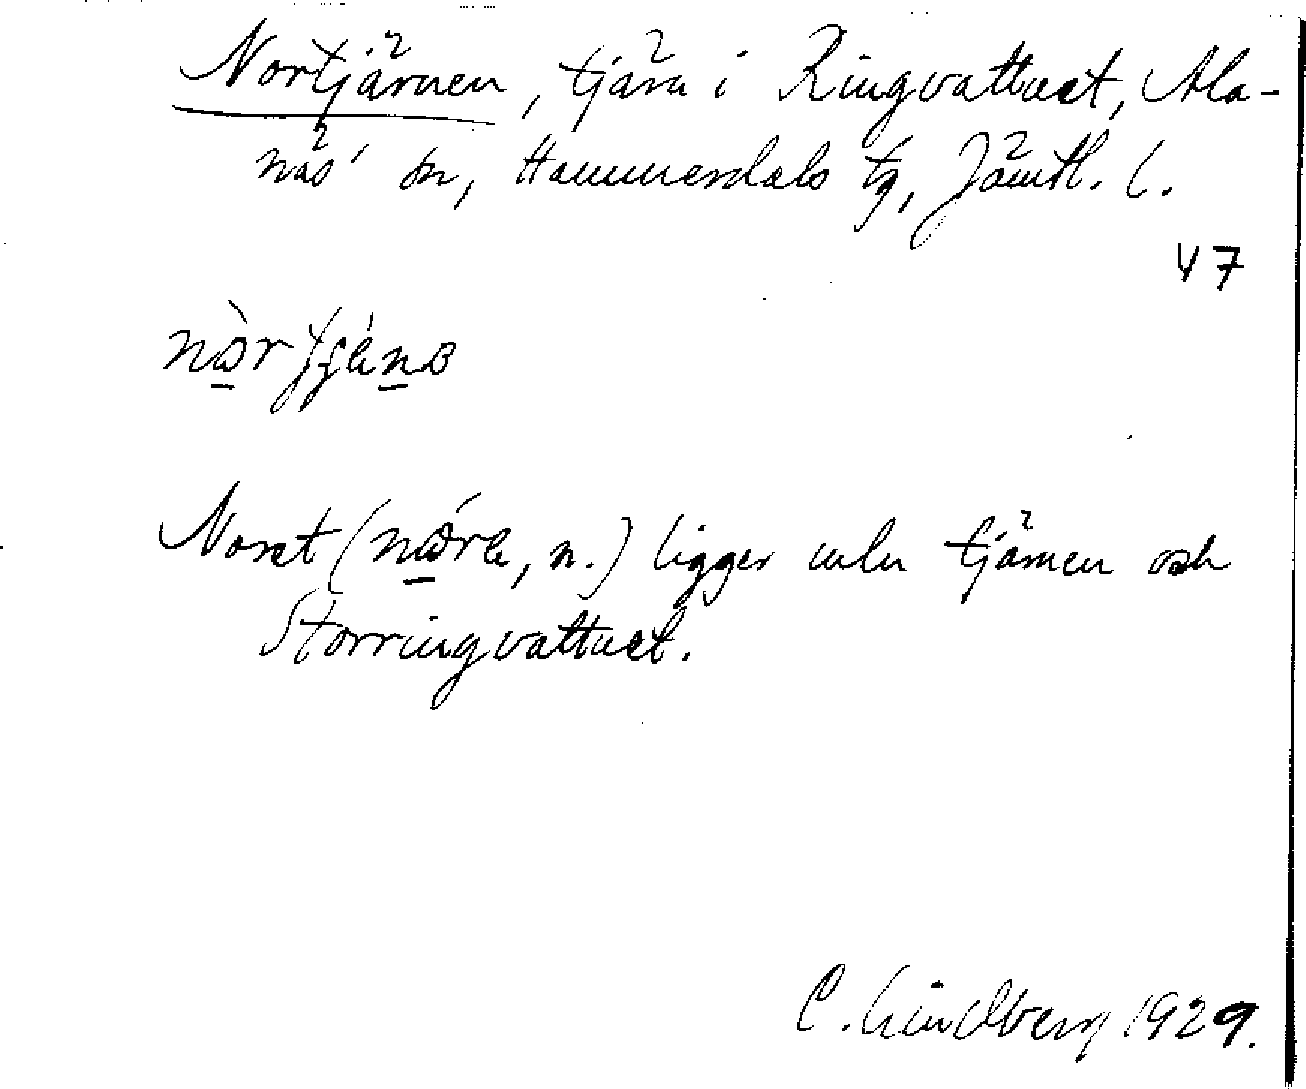 Nortjärnen, tjärn i Ringvattnet, Ala-
näs' sn, Hammerdals tg, Jämtl. l.
47
Noret (nɷ́ra, n.) ligger mln tjärnen och
Storringvattnet.
C. Lindberg 1929.